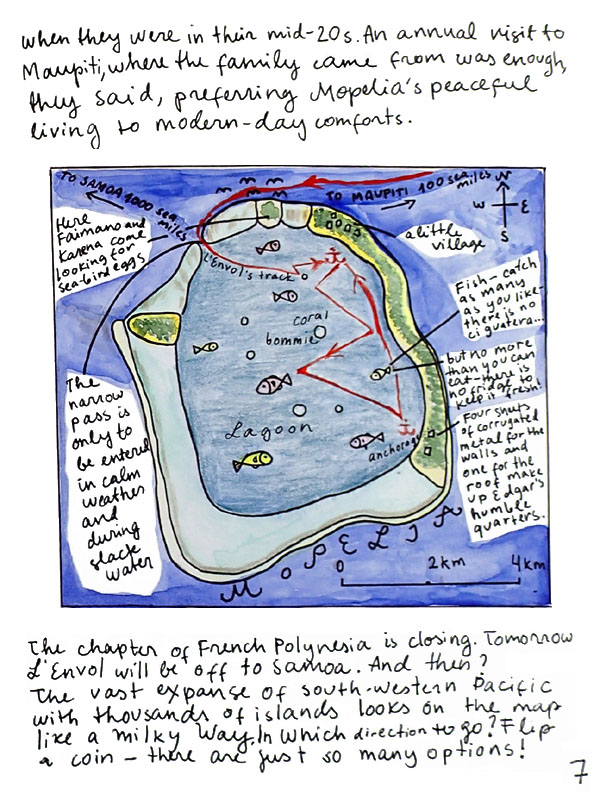 when they were in their mid-20s. An annual visit to
Maupiti, where the family came from was enough,
they said, preferring Mopelia's peaceful
living to modern-day comforts.
TO SAMOA 1000 sea
miles
TO MAUPITI 100 sea
miles
N
W
E
S
Here
Faimano and
Karena come
looking for
sea-bird eggs
a little
village
L'Envol's track
Fish-catch
as many
as you like-
there is no
ciguatera...
coral
bommie
but no more
than you can
eat-there is
no fridge to
keep it fresh!
The
narrow
pass is
only to
be entered
in calm
weather
and
during
slack
water
Lagoon
anchorage
Four shuts
of corrugated
metal for the
walls and
one for the
roof make
up Edgar's
humble
quarters.
MOPELIA
0
2km
4km
The chapter of French Polynesia is closing. Tomorrow
L'Envol will be off to Samoa. And then?
The vast expanse of south-western Pacific
with thousands of islands looks on the map
like a milky way. In which direction to go? Flip
a coin - there are just so many options!
7